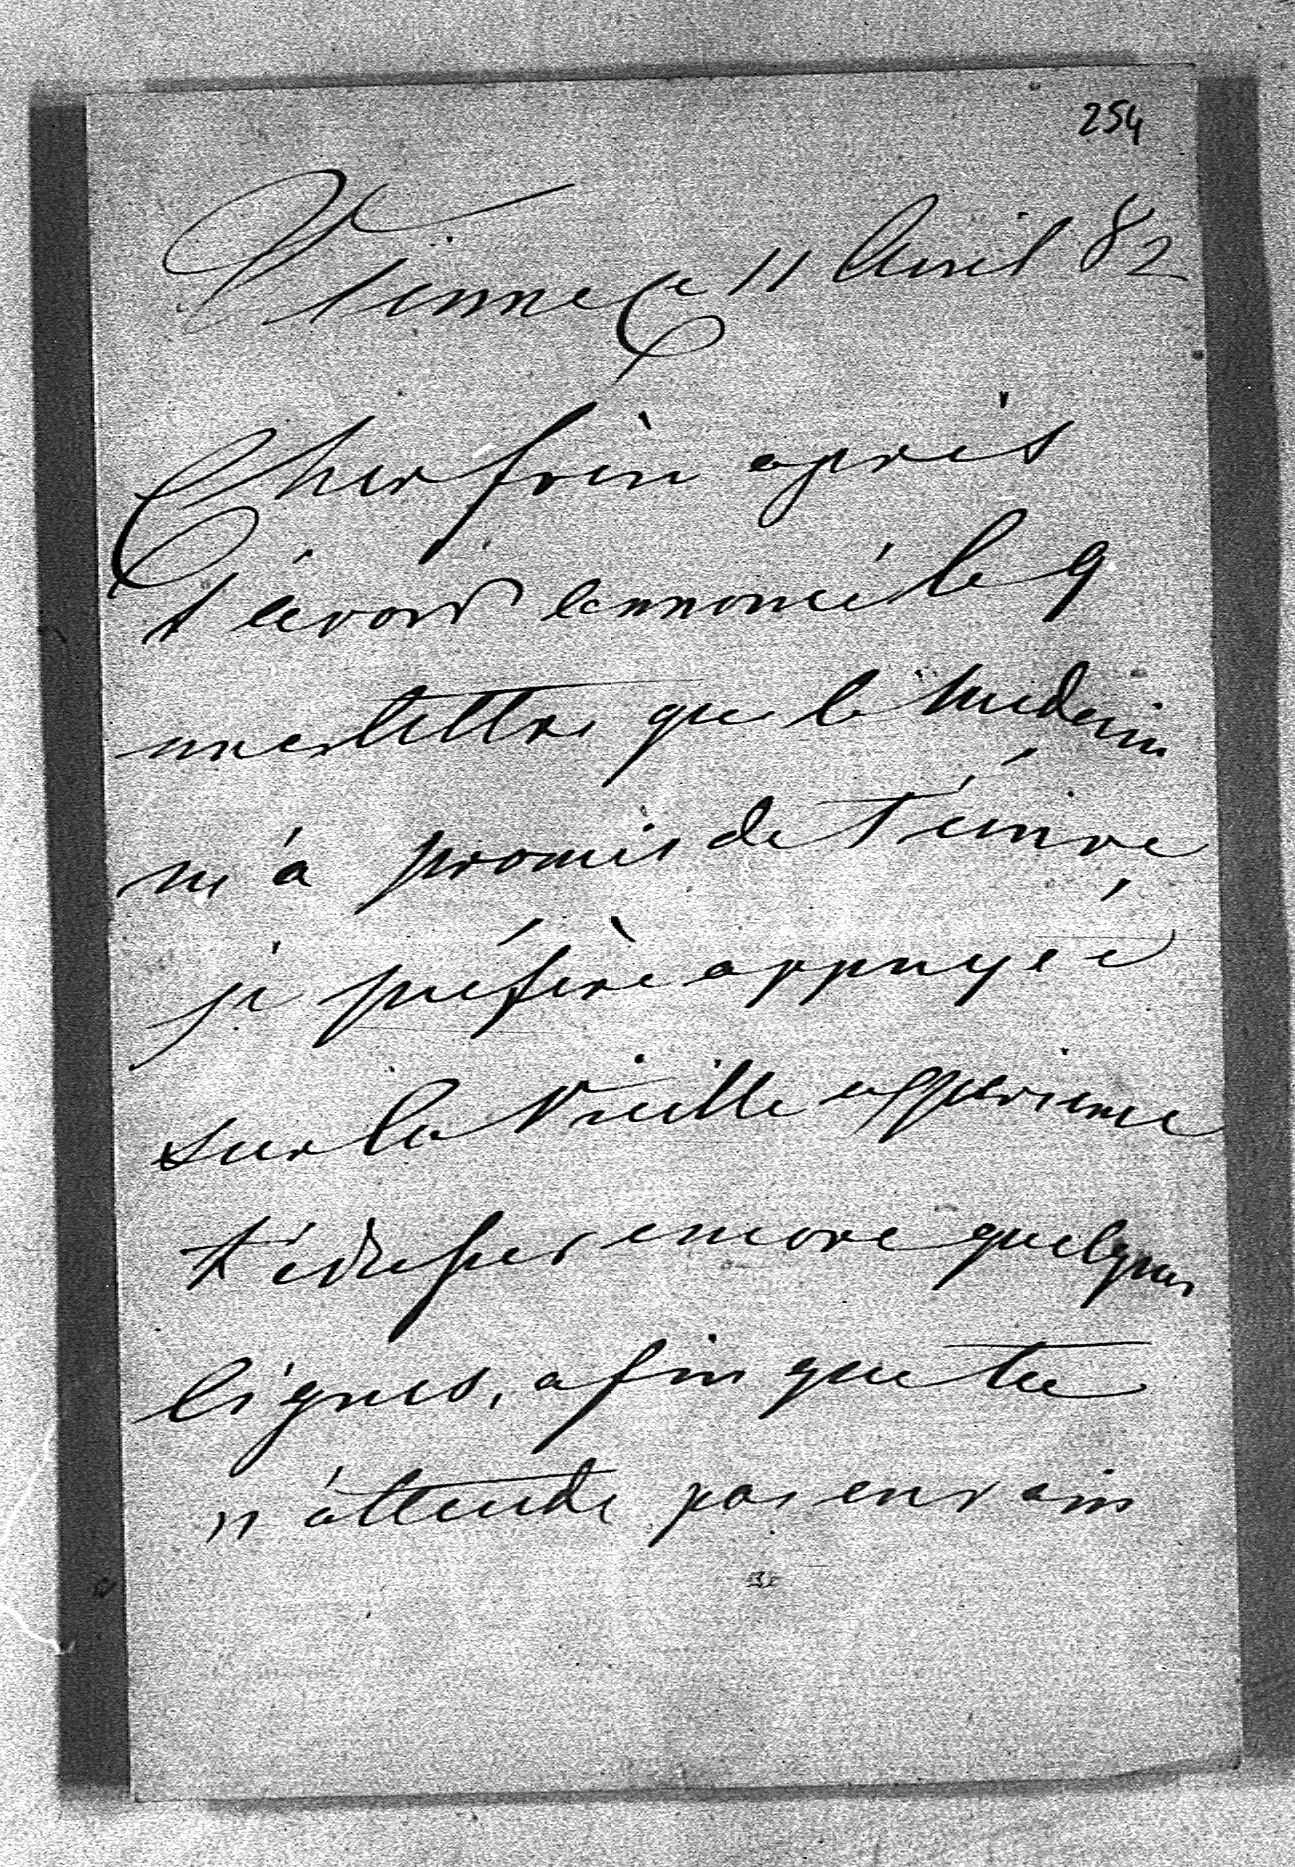 254
Vienne Ce 11 Avril 82
Cher frère après
t'àvoir annoncé le 9
une lettre que le medecin
m'à promis de t'écrire
je préfère appuyée
sur la Vieille expérience
t'adresser encore quelques
lignes, afin que tu
n'àttende pas en vain